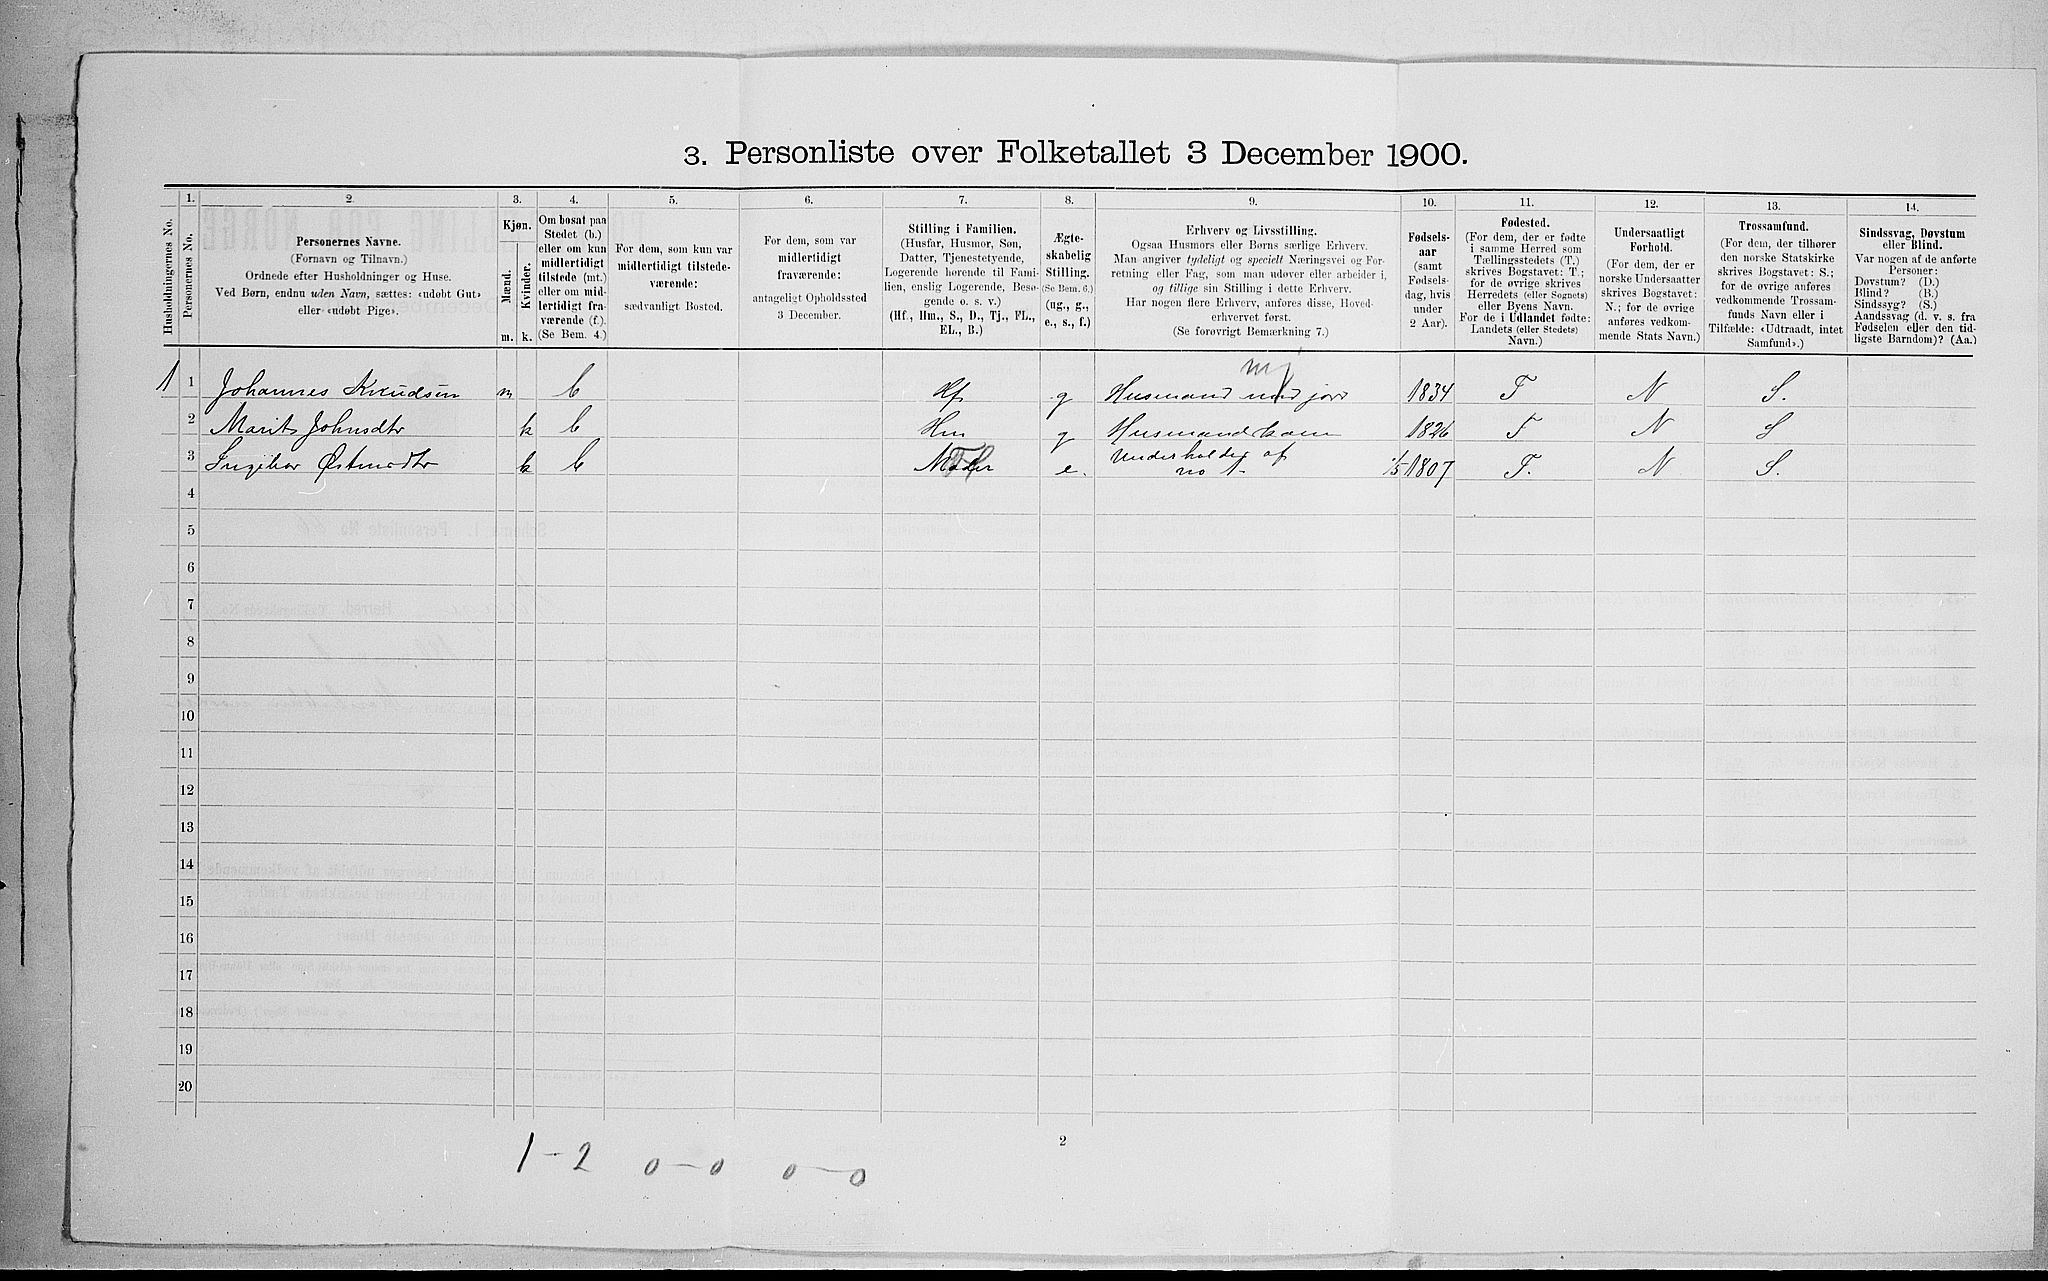 3. Personliste over Folketallet 3 December 1900.
Husholdningernes No.
1.
Personernes No.
2.
Personernes Navne.
(Fornavn og Tilnavn.)
Ordnede efter Husholdninger og Huse.
Ved Børn, endnu uden Navn, sættes: «udøbt Gut»
eller «udøbt Pige».
3.
Kjøn.
Mænd.
Kvinder.
m. k.
4.
Om bosat paa
Stedet (b.)
eller om kun
midlertidigt
tilstede (mt.)
eller om mid-
lertidigt fra-
værende (f.).
(Se Bem. 4.)
5.
For dem, som kun var
midlertidigt tilstede-
værende:
sædvanligt Bosted.
6.
For dem, som var
midlertidigt
fraværende:
antageligt Opholdssted
3 December.
7.
Stilling i Familien.
(Husfar, Husmor, Søn,
Datter, Tjenestetyende,
Logerende hørende til Fami-
lien, enslig Logerende, Besø-
gende o. s. v.)
(Hf., Hm., S., D., Tj., FL.,
EL., B.)
8.
Ægte-
skabelig
Stilling.
(Se Bem. 6.)
(ug., g.,
e., s., f.)
9.
Erhverv og Livsstilling.
Ogsaa Husmors eller Børns særlige Erhverv.
Man angiver tydeligt og specielt Næringsvei og For-
retning eller Fag, som man udøver eller arbeider i,
og tillige sin Stilling i dette Erhverv.
Har nogen flere Erhverv, anføres disse, Hoved-
erhvervet først.
(Se forøvrigt Bemærkning 7.)
10.
Fødsels-
aar
(samt
Fødsels-
dag, hvis
under
2 Aar).
11.
Fødested.
(For dem, der er fødte
i samme Herred som
Tællingsstedets (T.)
skrives Bogstavet: T.;
for de øvrige skrives
Herredets (eller Sognets)
eller Byens Navn.
For de i Udlandet fødte:
Landets (eller Stedets)
Navn.)
12.
Undersaatligt
Forhold.
(For dem, der er
norske Undersaatter
skrives Bogstavet:
N.; for de øvrige
anføres vedkom-
mende Stats Navn.)
13.
Trossamfund.
(For dem, der tilhører
den norske Statskirke
skrives Bogstavet: S.;
for de øvrige anføres
vedkommende Trossam-
funds Navn eller i
Tilfælde: «Udtraadt, intet
Samfund».)
14.
Sindssvag, Døvstum
eller Blind.
Var nogen af de anførte
Personer:
Døvstum? (D.)
Blind? (B.)
Sindssyg? (S.)
Aandssvag (d. v. s. fra
Fødselen eller den tid-
ligste Barndom)? (Aa.)
mj
1 1 Johannes Knudsen m b Hf g Husmand med jord 1834 T N S.
2 Marit Johnsdtr k b Hm g Husmandkone 1826 T N S
3 Ingebor Østensdtr k b Moder e. Underholdes af no 1 1/5 1807 T. N S.
4
5
6
7
8
9
10
11
12
13
14
15
16
17
18
19
20
2
1-2 0-0 0-0